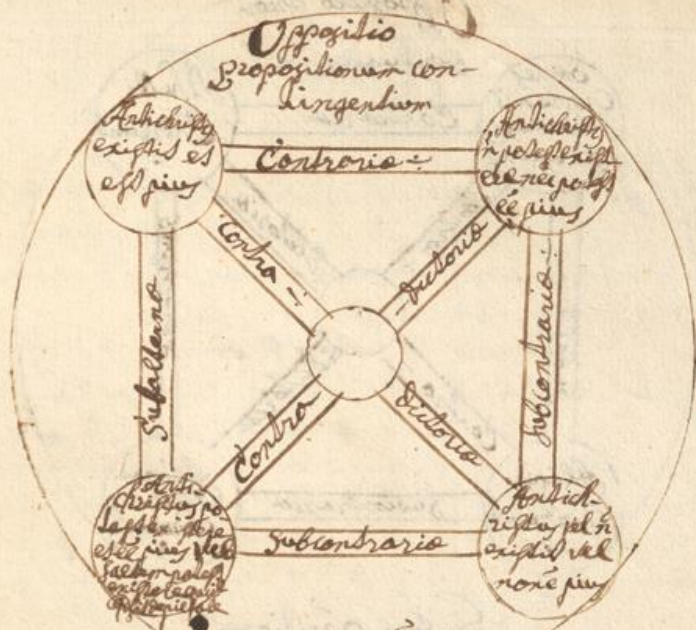 Oppositio
propositionum con-
tingentium
Antichristꝯ
existit et
est pius
Contraria
Antichristꝯ
ñ potest exist
ere nec potest
eē pius
Contra
dictoria
Subalterna
Subcontraria
Contra
dictoria
Anti-
christus po
test existere
et eē pius vel
saltem potest
existere
Subcontraria
Antich-
ristus vel ñ
existit vel
non ē pius